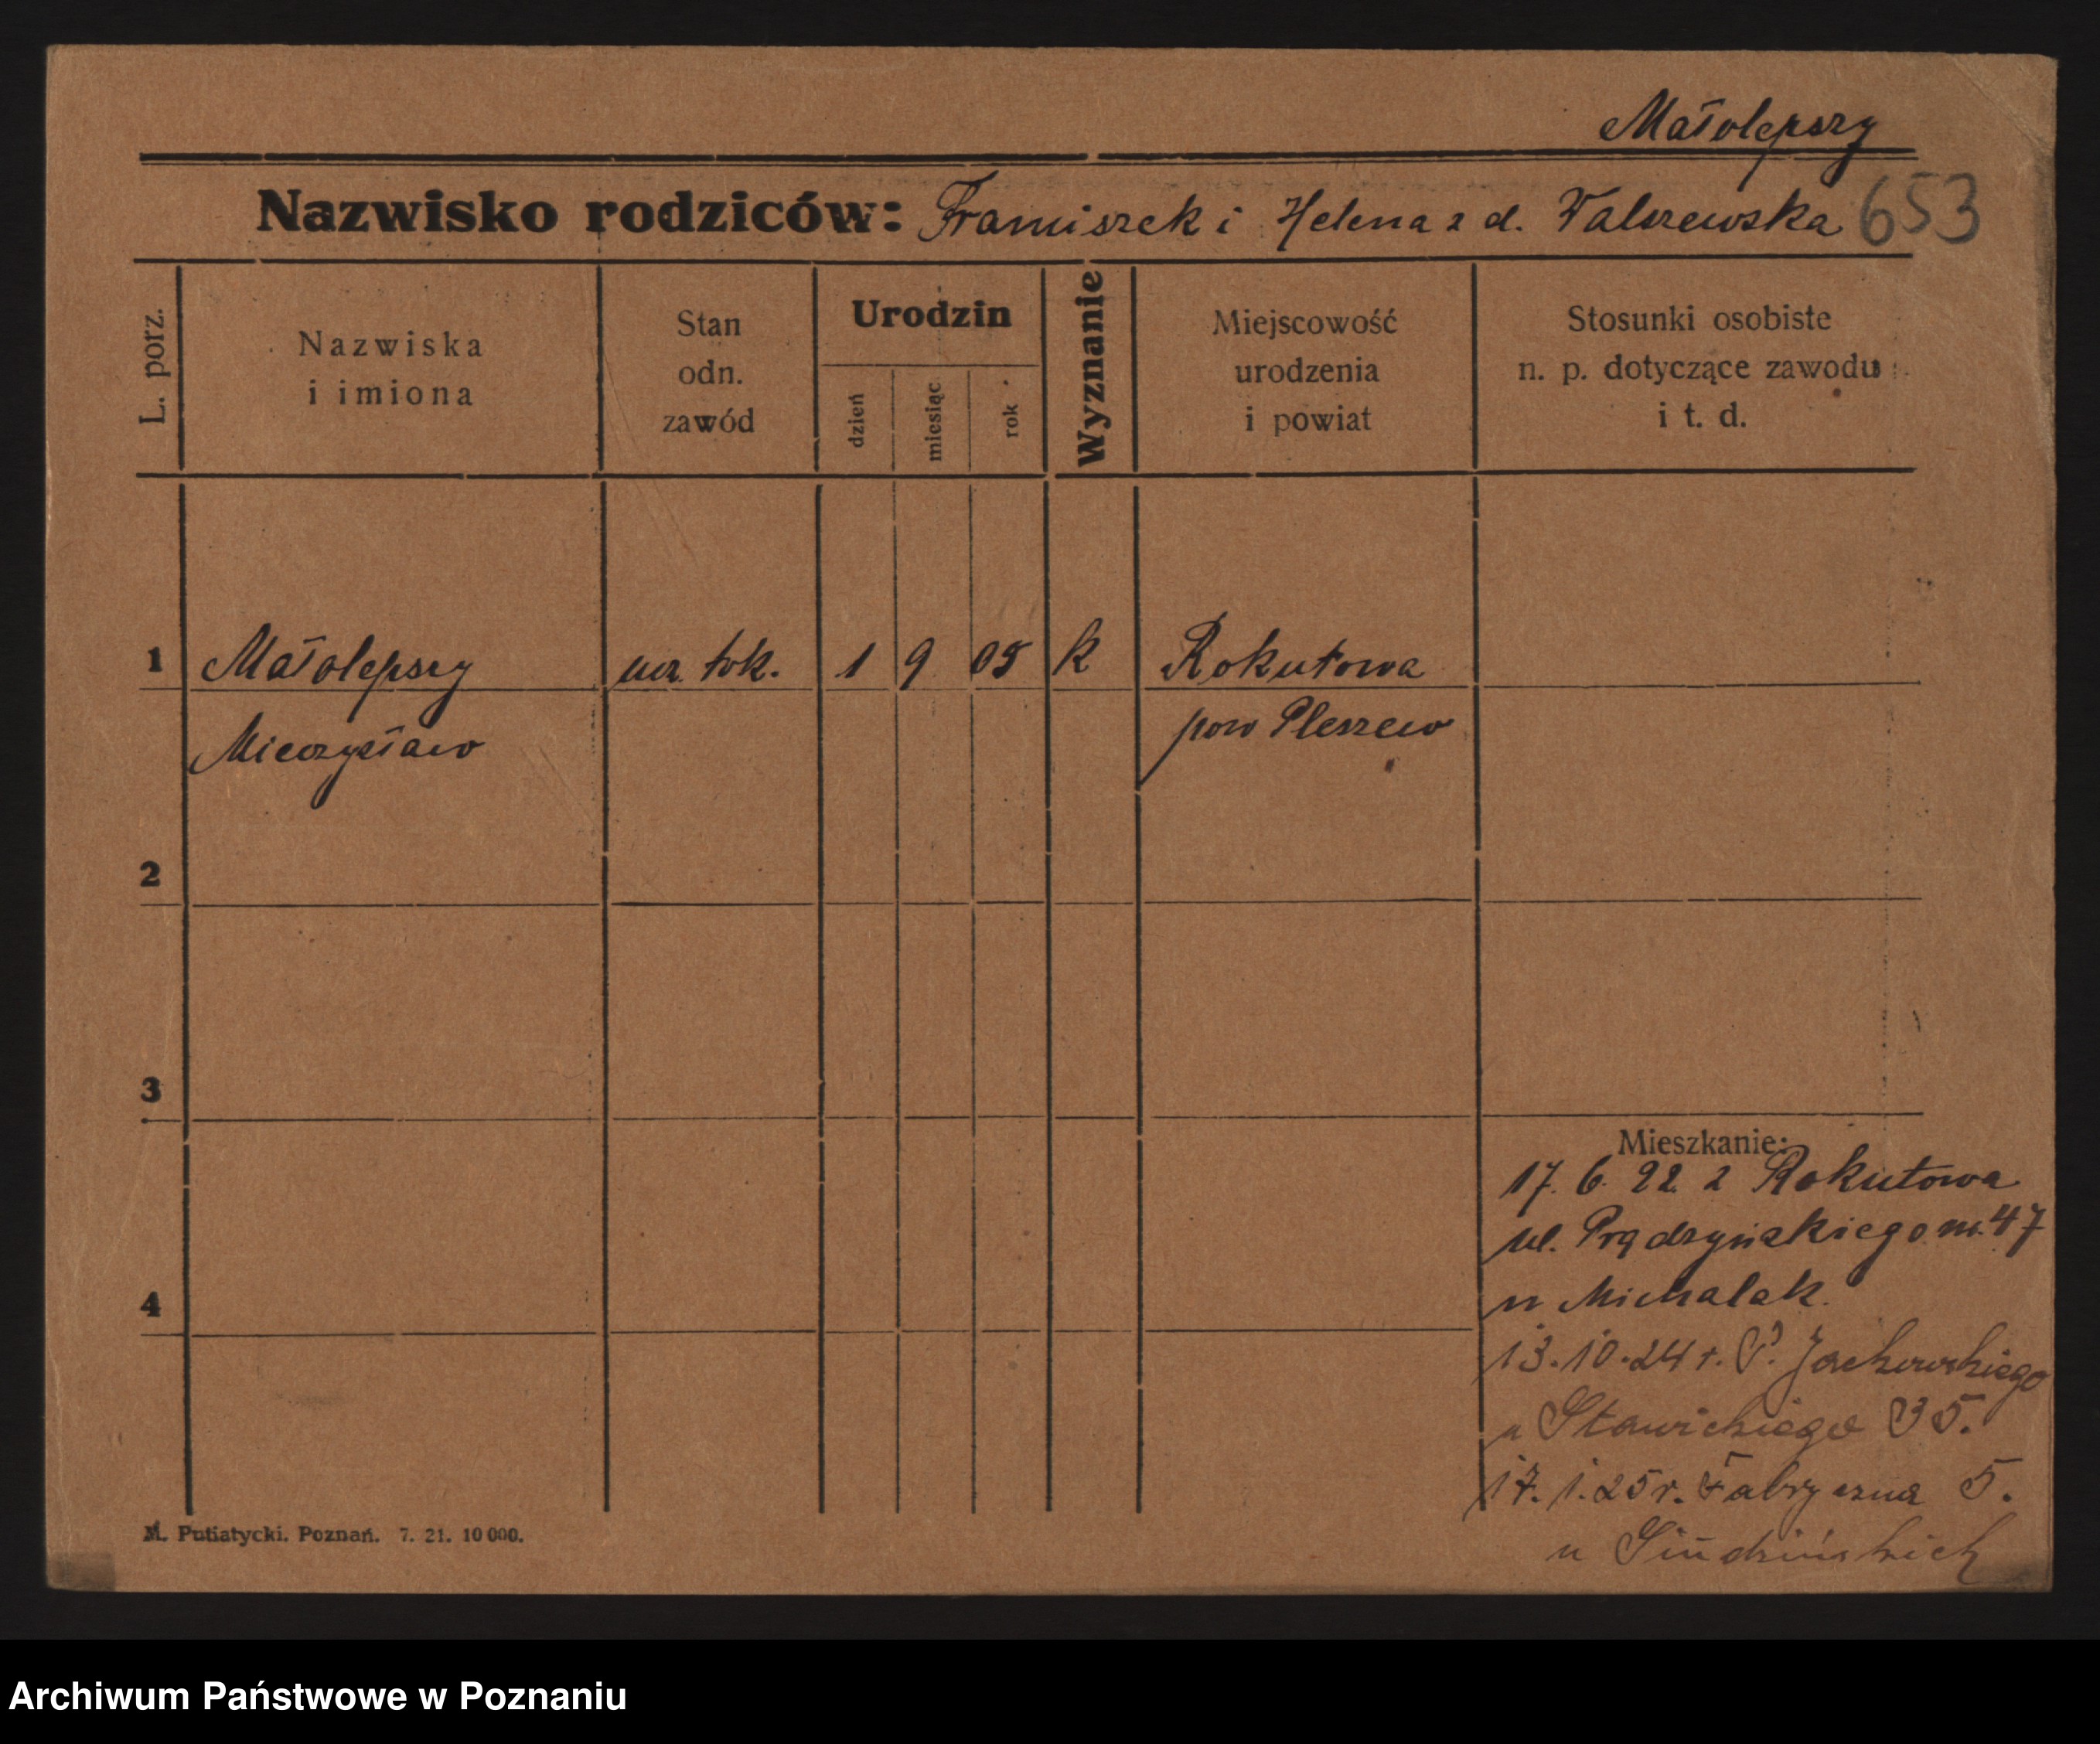 Małolepszy
Nazwisko rodziców: Franciszek i Helena z d. Walszewska 653
L. porz.
Nazwiska
i imiona
Stan
odn.
zawód
Urodzin
dzień
miesiąc
rok
Wyznanie
Miejscowość
urodzenia
i powiat
Stosunki osobiste
n. p. dotyczące zawodu
i t. d.
1 Małolepszy ucz. tok. 1 9 05 k Rokutowa
Mieczysław pow Pleszew
2
3
Mieszkanie:
17. 6. 22. z Rokutowa
ul. Prądzyńskiego nr. 47
4
u Michalak.
13.10.24 r. P. Jackowskiego
u Stawickiego 35.
17.1.25r. Fabryczna 5.
u
M. Putiatycki. Poznań. 7. 21. 10 000.
Archiwum Państwowe w Poznaniu